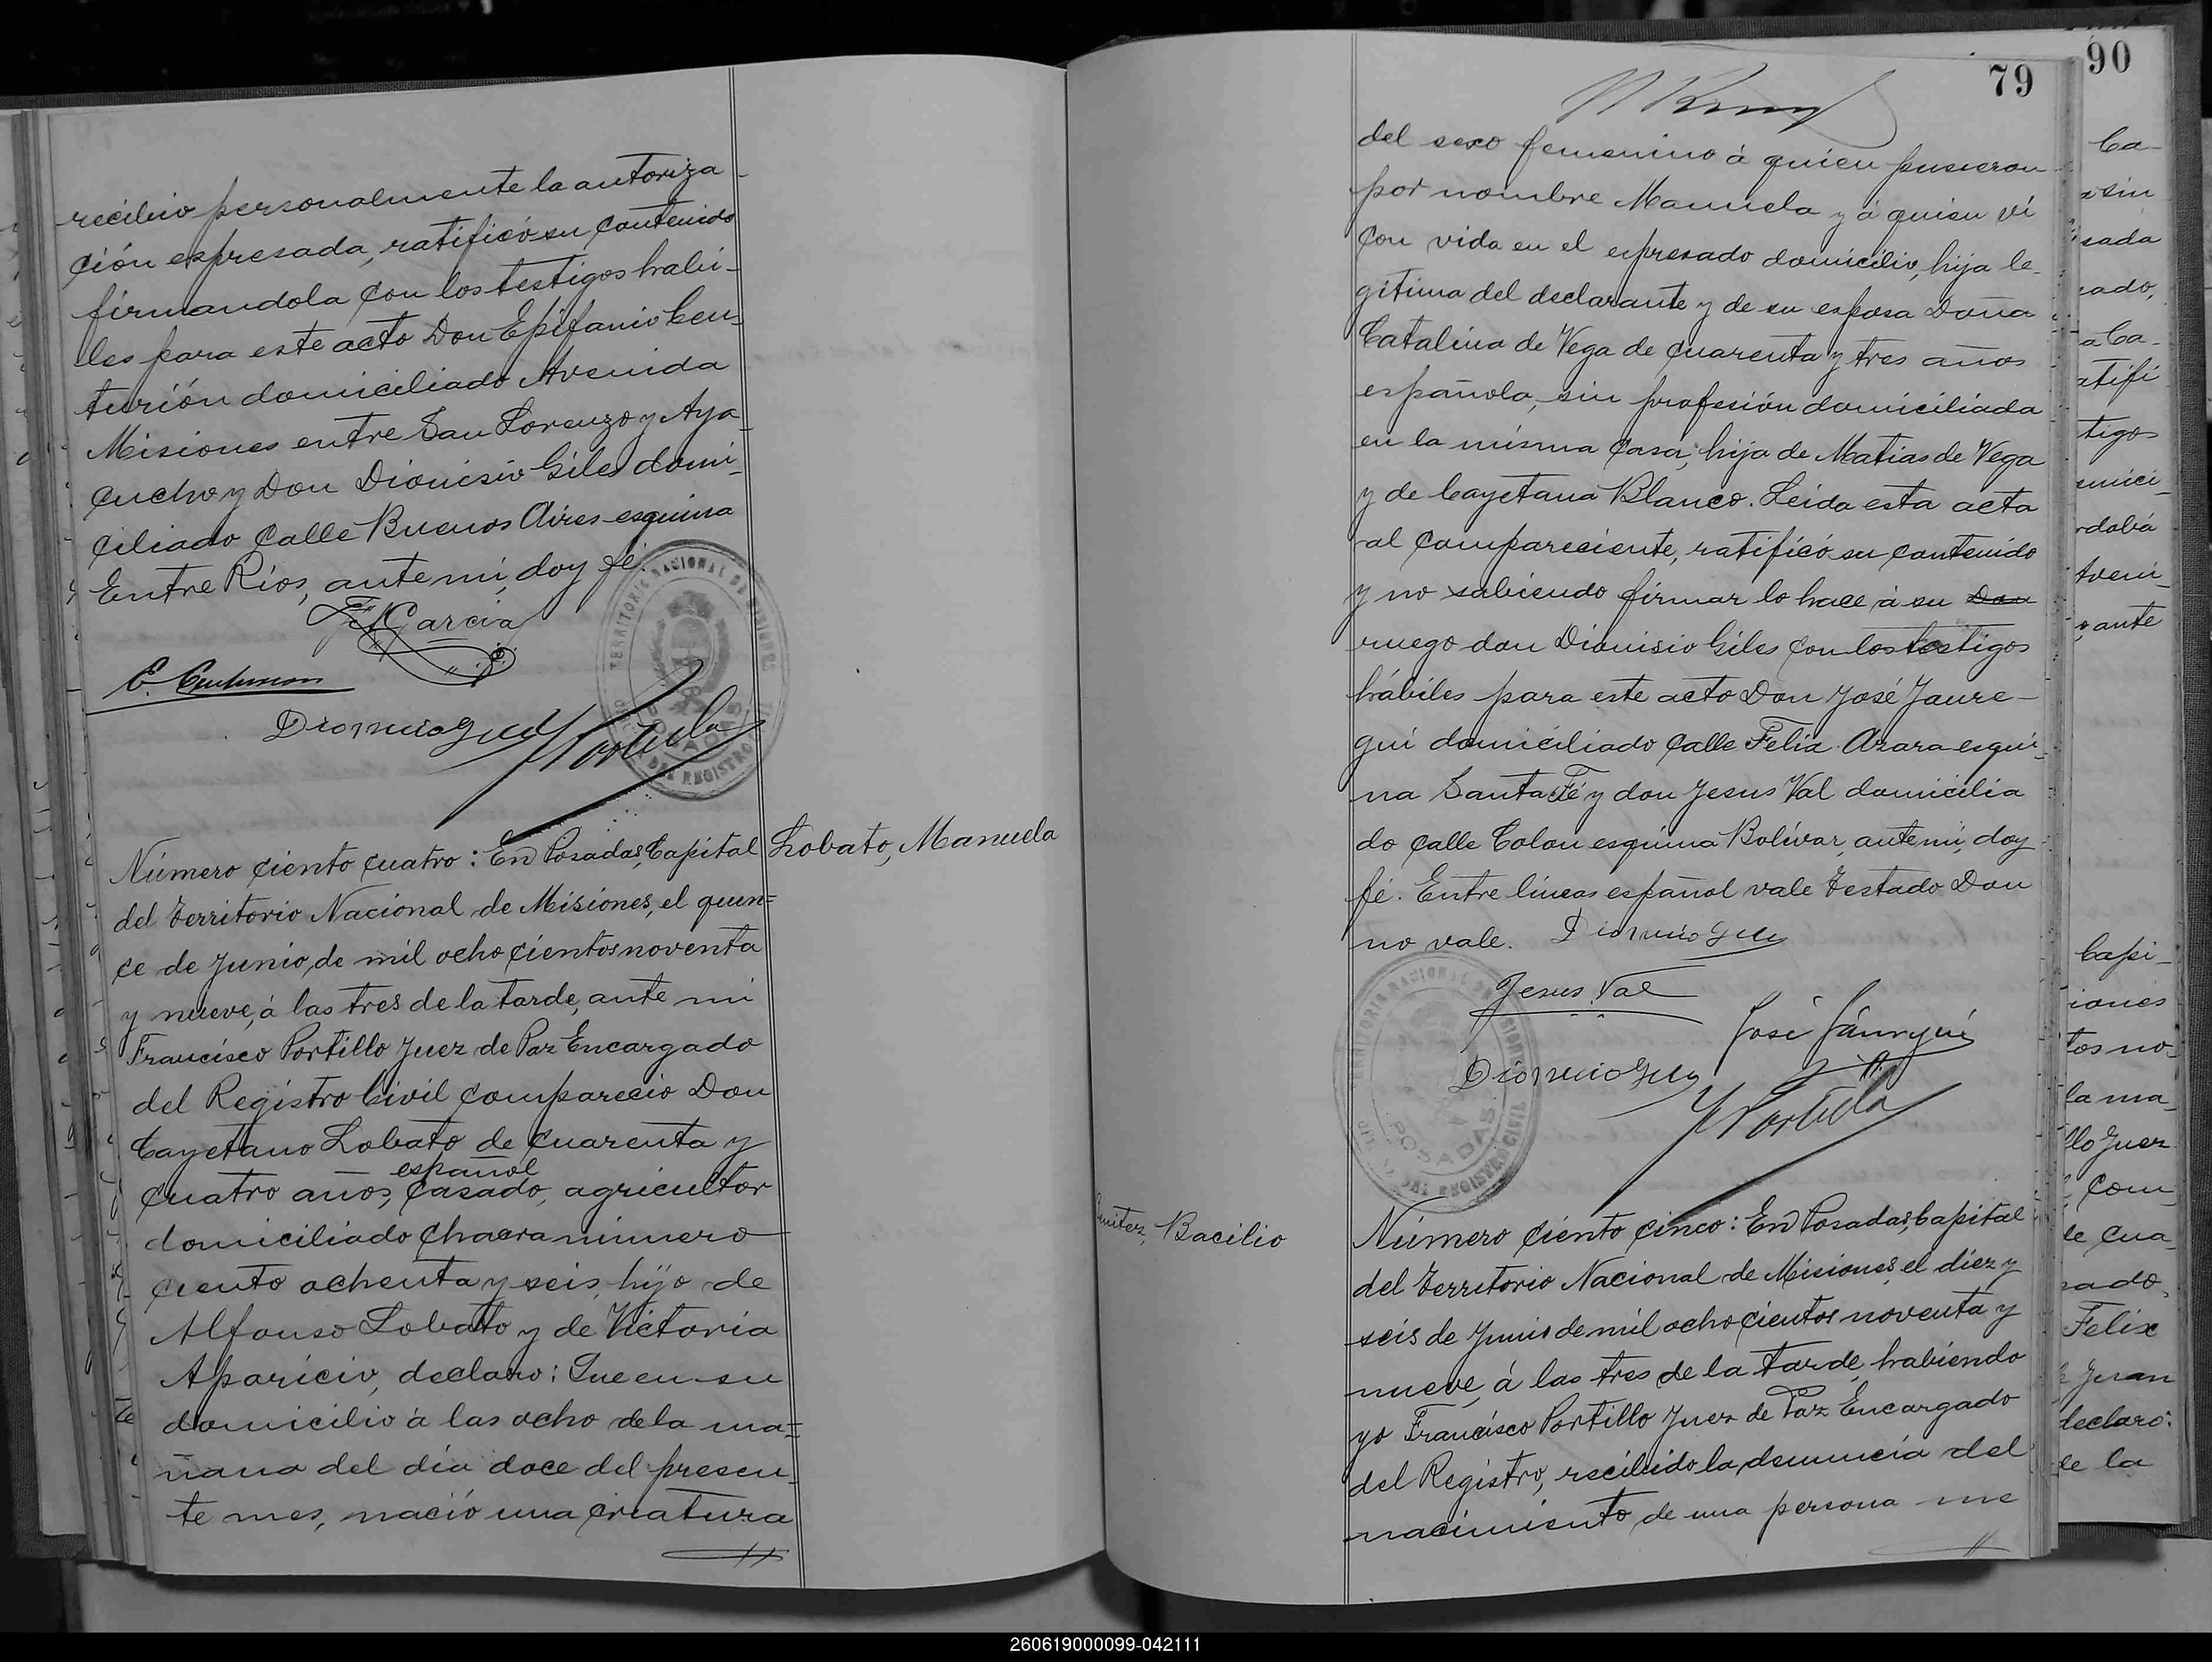 recibio personalmente la autoriza-
ción expresada, ratificó su contenido
firmandola con los testigos habi-
les para este acto Don Epifanio Cen-
turión domiciliado Avenida
Misiones entre San Lorenzo y Aya-
cucho y Don Dionisio Giles domi-
ciliado calle Buenos Aires esquina
Entre Rios, ante mi, doy fé.
Garcia
E. Centurion
Dionisio Giles
F Portillo
TERRITORIO NACIONAL DE MISIONES
POSADAS
DEL REGISTRO
Lobato, Manuela
Número ciento cuatro: En Posadas, Capital
del Territorio Nacional de Misiones, el quin=
ce de Junio, de mil ochocientos noventa
y nueve, á las tres de la tarde, ante mi
Francisco Portillo Juez de Paz Encargado
del Registro Civil comparecio Don
Cayetano Lobato de cuarenta y
español
cuatro años, casado, agricultor
domiciliado chacra número
ciento ochenta y seis, hijo de
Alfonso Lobato y de Victoria
Aparicio, declaro: Que en su
domicilio á las ocho de la ma=
ñana del día doce del presen-
te mes, nació una criatura
79
del sexo femenino á quien pusieron
por nombre Manuela y á quien ví
con vida en el expresado domicilio, hija le-
gitima del declarante y de su esposa Doña
Catalina de Vega de cuarenta y tres años
española, sin profesión domiciliada
en la misma casa, hija de Matias de Vega
y de Cayetana Blanco. Leida esta acta
al compareciente, ratificó su contenido
y no sabiendo firmar lo hace á su Don
ruego don Dionisio Giles con los testigos
hábiles para este acto Don José Jaure-
gui domiciliado calle Felix Azara esqui-
na Santa Fé y don Jesus Val domicilia
do calle Colon esquina Bolívar, ante mi, doy
fé. Entre líneas español vale Testado Don
no vale. Dionisio Giles
Jesus Val
José Jáuregui
Dionisio Giles
F Portillo
TERRITORIO NACIONAL DE MISIONES
POSADAS
DEL REGISTRO CIVIL
Benitez, Bacilio
Número ciento cinco: En Posadas, Capital
del Territorio Nacional de Misiones, el diez y
seis de Junio de mil ochocientos noventa y
nueve, á las tres de la tarde, habiendo
yo Francisco Portillo Juez de Paz Encargado
del Registro, recibido la denuncia del
nacimiento de una persona me
90
Ca-
sada
ado,
a Ca-
atifi
tigos
mici-
rdoba
Aveni-
ante
Capi-
iones
tos no-
la ma-
llo Juez
com
de cua-
sado,
Felix
Juan
declaro:
de la
260619000099-042111